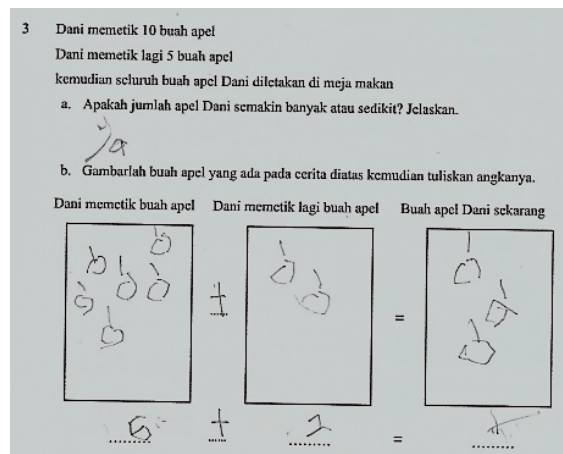 3 Dani memetik 10 buah apel
Dani memetik lagi 5 buah apel
kemudian seluruh buah apel Dani diletakan di meja makan
a. Apakah jumlah apel Dani semakin banyak atau sedikit? Jelaskan.
ya
b. Gambarlah buah apel yang ada pada cerita diatas kemudian tuliskan angkanya.
Dani memetik buah apel Dani memetik lagi buah apel Buah apel Dani sekarang
+ =
+ 2 =